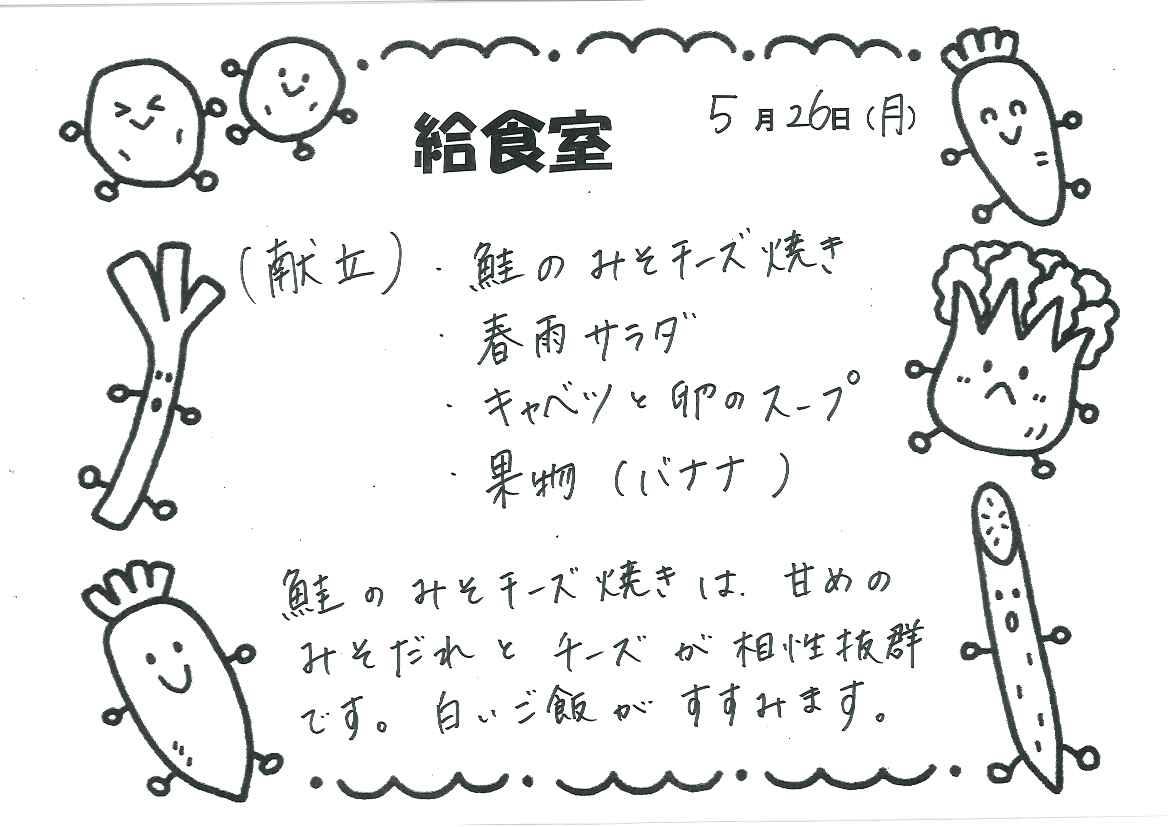 給食室
5月26日(月)
(献立)・鮭のみそチーズ焼き
・春雨サラダ
・キャベツと卵のスープ
・果物(バナナ)
鮭のみそチーズ焼きは、甘めの
みそだれとチーズが相性抜群
です。白いご飯がすすみます。